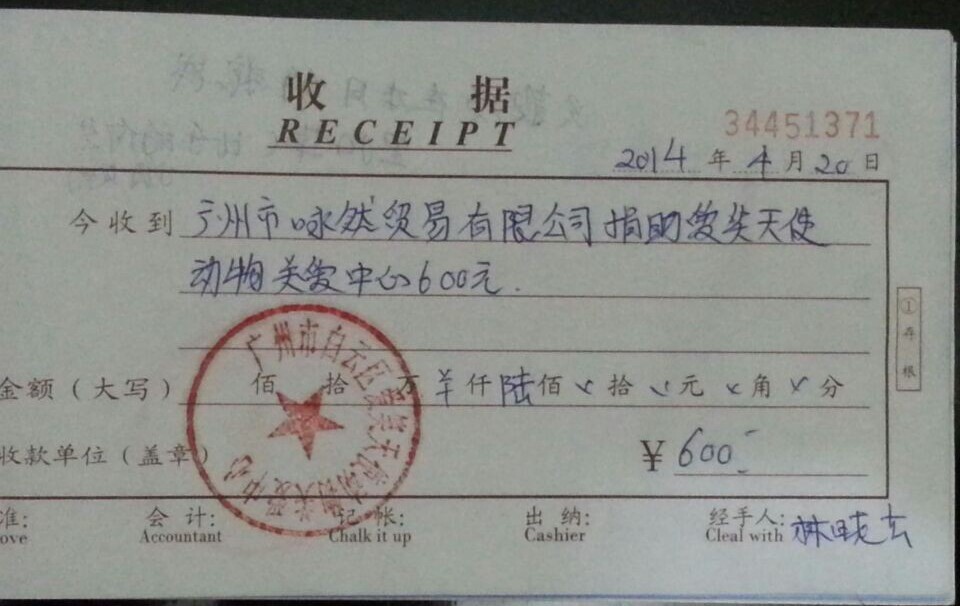 收 据
RECEIPT
34451371
2014 年 4 月 20 日
今收到 广州市咏然贸易有限公司捐助爱笑天使
动物关爱中心600元.
① 存根
金额(大写) 佰 拾 万 羊仟陆佰 × 拾 × 元 × 角 × 分
收款单位(盖章) ¥600
广州市白云区爱笑天使动物关爱中心
准: 会 计: 记 帐: 出 纳: 经手人: 林晓玄
ove Accountant Chalk it up Cashier Cleal with